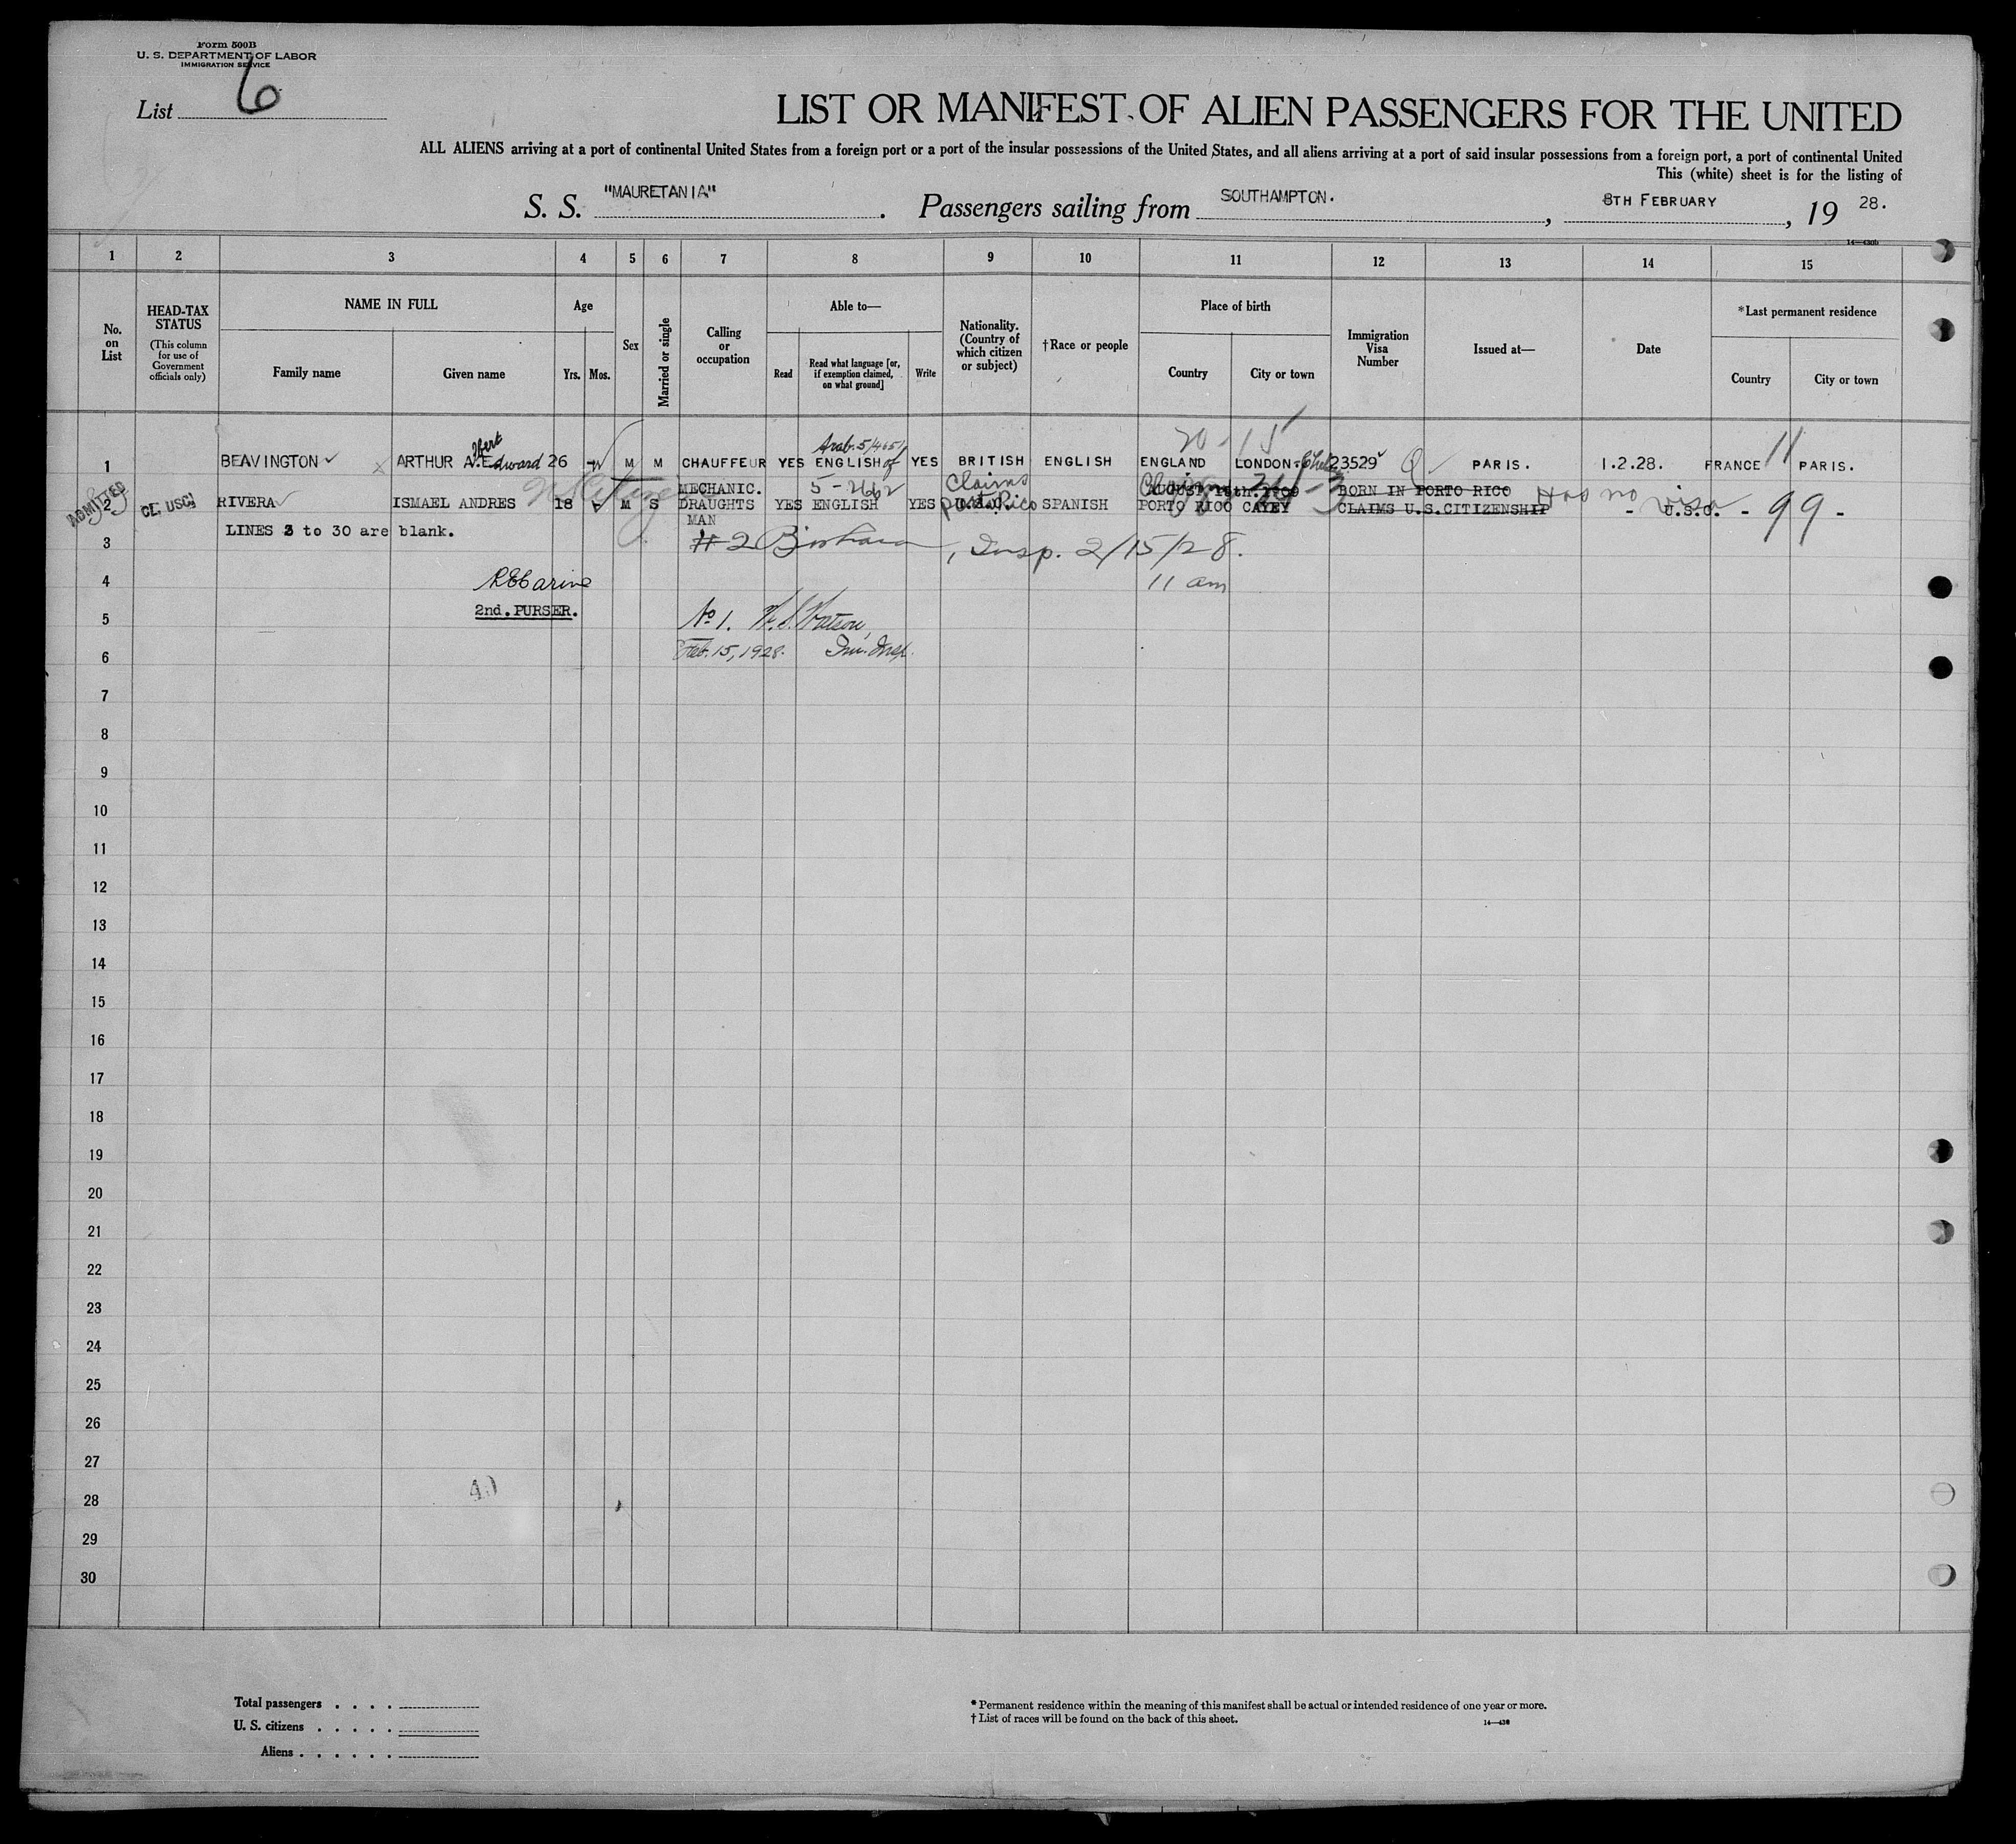 Form 500B
U. S. DEPARTMENT OF LABOR
IMMIGRATION SERVICE
List 6
LIST OR MANIFEST OF ALIEN PASSENGERS FOR THE UNITED
ALL ALIENS arriving at a port of continental United States from a foreign port or a port of the insular possessions of the United States, and all aliens arriving at a port of said insular possessions from a foreign port, a port of continental United
This (white) sheet is for the listing of
S. S. "MAURETANIA". Passengers sailing from SOUTHAMPTON. , 8TH FEBRUARY , 19 28.
14—430b
1 2 3 4 5 6 7 8 9 10 11 12 13 14 15
No. on List
HEAD-TAX STATUS
(This column for use of Government officials only)
NAME IN FULL
Family name
Given name
Age
Yrs.
Mos.
Sex
Married or single
Calling or occupation
Able to—
Read
Read what language [or, if exemption claimed, on what ground]
Write
Nationality. (Country of which citizen or subject)
†Race or people
Place of birth
Country
City or town
Immigration Visa Number
Issued at—
Date
*Last permanent residence
Country
City or town
20-15
1 BEAVINGTON ARTHUR A. Edward 26 M M CHAUFFEUR YES ENGLISH YES BRITISH ENGLISH ENGLAND LONDON 23529 PARIS. 1.2.28. FRANCE 11 PARIS.
MECHANIC. 5-2662 Claims AUGUST 15th. 1909 BORN IN PORTO RICO Has no visa
ADMITTED 2 RIVERA ISMAEL ANDRES US Citizen 18 M S DRAUGHTS YES ENGLISH YES Porto Rico SPANISH PORTO RICO CAYEY CLAIMS U.S.CITIZENSHIP - U.S.C. - 99 -
MAN
3 LINES 3 to 30 are blank.
#2 , Insp. 2/15/28.
11 am
4
2nd. PURSER.
5 No 1. W. S. Watson,
6 Feb. 15, 1928. Imm. Insp.
7
8
9
10
11
12
13
14
15
16
17
18
19
20
21
22
23
24
25
26
27
28
29
30
Total passengers . . . .
U. S. citizens . . . . .
Aliens . . . . . .
* Permanent residence within the meaning of this manifest shall be actual or intended residence of one year or more.
† List of races will be found on the back of this sheet.
14—430